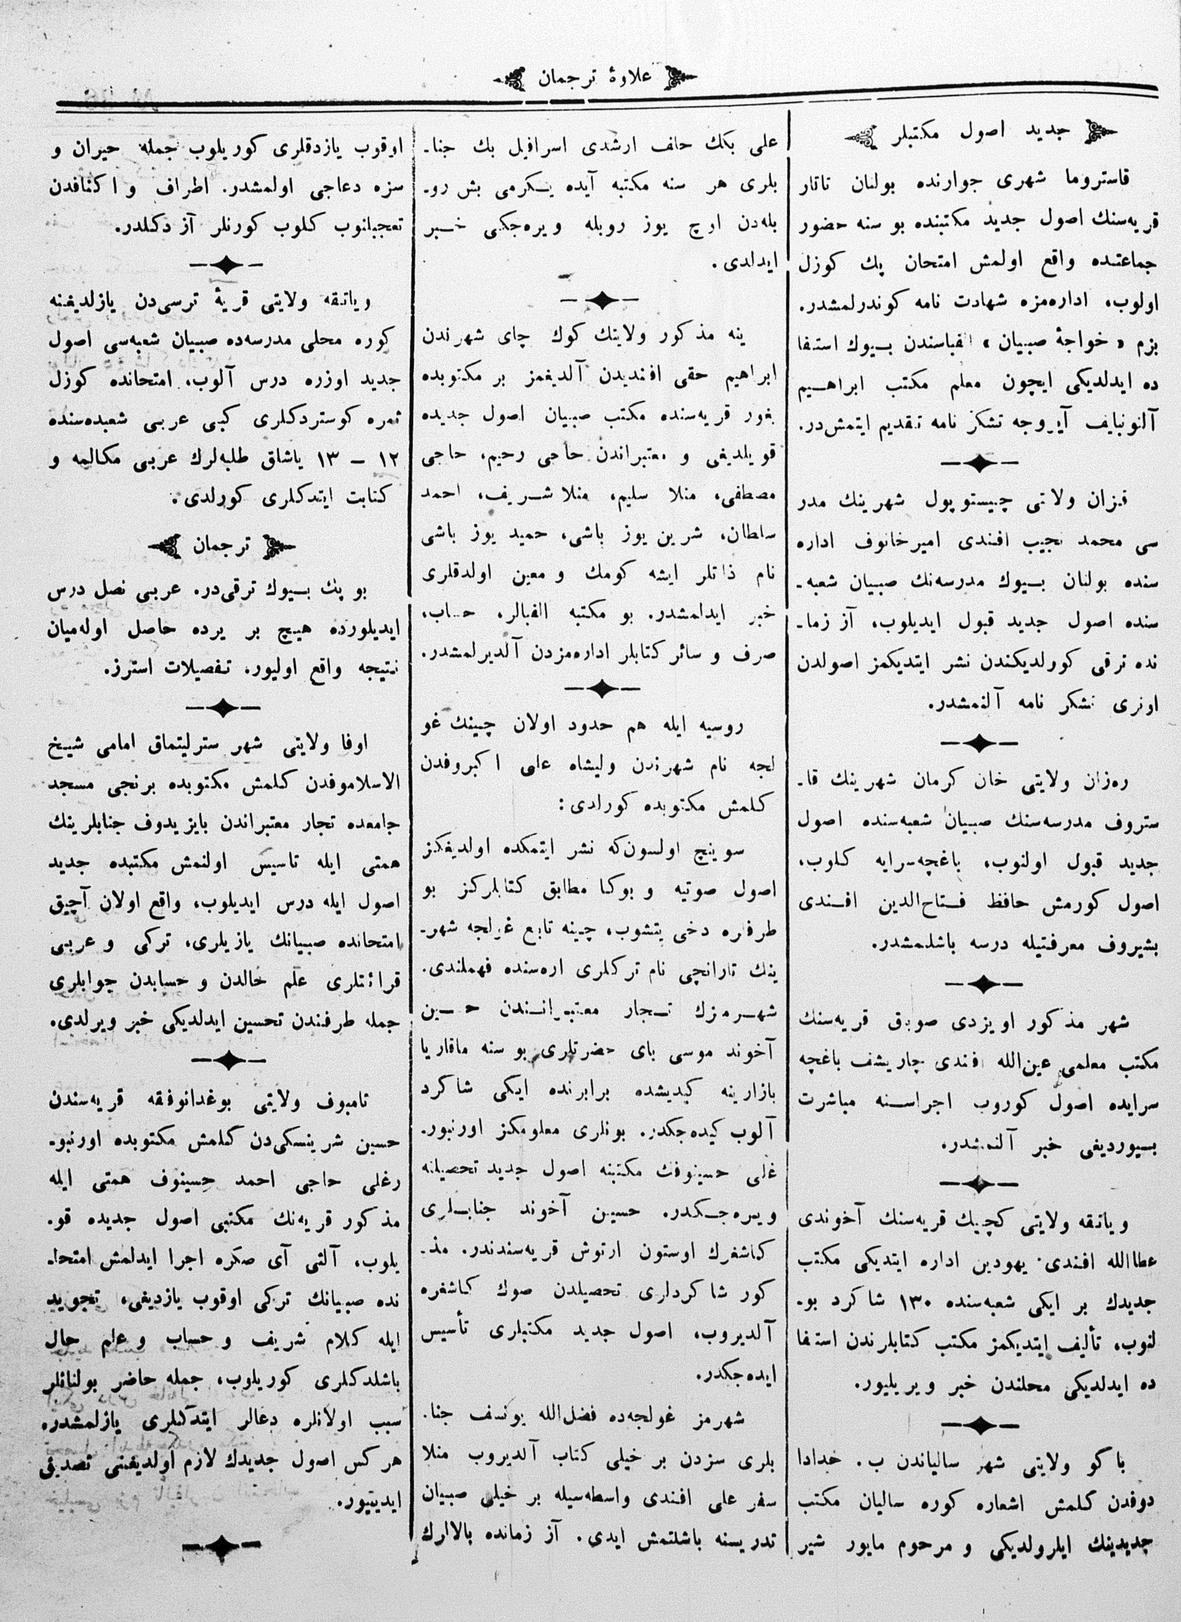 علاوۀ ترجمان
جدید اصول مکتبلر
قاستروما شهری جوارنده بولنان تاتار
قریه‌سنك اصول جدید مکتبنده بو سنه حضور
جماعتده واقع اولمش امتحان پك کوزل
اولوب، اداره‌مزه شهادت نامه کوندرلمشدر.
بزم «خواجۀ صبیان» الفباسندن بیوك استفا
ده ایدلدیکی ایچون معلم مکتب ابراهیم
آلتونبایف آیروجه تشکر نامه تقدیم ایتمش‌در.
قزان ولاتی چیستوپول شهرینك مدر
سی محمد نجیب افندی امیرخانوف اداره
سنده بولنان بیوك مدرسه‌نك صبیان شعبه‌ـ
سنده اصول جدید قبول ایدیلوب، آز زما‌ـ
نده ترقی کورلدیکندن نشر ایتدیکمز اصولدن
اوتری تشکر نامه آلنمشدر.
ره‌زان ولایتی خان کرمان شهرینك قا‌ـ
ستروف مدرسه‌سنك صبیان شعبه‌سنده اصول
جدید قبول اولنوب، باغچه‌سرایه کلوب،
اصول کورمش حافظ فتاح‌الدین افندی
بشیروف معرفتیله درسه باشلمشدر.
شهر مذکور اویزدی صوبق قریه‌سنك
مکتب معلمی عین‌الله افندی چاریشف باغچه
سرایده اصول کوروب اجراسنه مباشرت
بیوردیغی خبر آلنمشدر.
ویاتقه ولایتی کچیك قریه‌سنك آخوندی
عطاالله افندی یهودین اداره ایتدیکی مکتب
جدیدك بر ایکی شعبه‌سنده ۱۳۰ شاکرد بو‌ـ
لنوب، تألیف ایتدیکمز مکتب کتابلرندن استفا
ده ایدلدیکی محلندن خبر ویریلیور.
باکو ولایتی شهر سالیاندن ب. خدادا
دوفدن کلمش اشعاره کوره سالیان مکتب
جدیدینك ایلرولدیکی و مرحوم مایور شیر
علی بکك خلف ارشدی اسرافیل بك جنا‌ـ
بلری هر سنه مکتبه آیده یکرمی بش رو‌ـ
بله‌دن اوچ یوز روبله ویره‌جکی خبر
ایدلدی.
ینه مذکور ولایتك کوك چای شهرندن
ابراهیم حقی افندیدن آلدیغمز بر مکتوبده
بغور قریه‌سنده مکتب صبیان اصول جدیده
قویلدیغی و معتبراندن حاجی رحیم، حاجی
مصطفی، منلا سلیم، منلا شریف، احمد
سلطان، شرین یوز باشی، حمید یوز باشی
نام ذاتلر ایشه کومك و معین اولدقلری
خبر ایدلمشدر. بو مکتبه الفبالر، حساب،
صرف و سائر کتابلر اداره‌مزدن آلدیرلمشدر.
روسیه ایله هم حدود اولان چینك غو
لجه نام شهرندن ولیشاه علی اکبروفدن
کلمش مکتوبده کورلدی:
سوینچ اولسون‌که نشر ایتمکده اولدیغکز
اصول صوتیه و بوکا مطابق کتابلرکز بو
طرفلره دخی یتشوب، چینه تابع غولجه شهر‌ـ
ینك تارانچی نام ترکلری اره‌سنده فهملندی.
شهرمزك تجار معتبرانندن حسین
آخوند موسی بای حضرتلری بو سنه ماقاریا
بازارینه کیدیشده برابرنده ایکی شاکرد
آلوب کیده‌جکدر. بونلری معلومکز اورنبور‌.
غلی حسینوفك مکتبنه اصول جدید تحصیلنه
ویره‌جکدر. حسین آخوند جنابلری
کاشغرك اوستون ارتوش قریه‌سندندر. مذ‌ـ
کور شاکردلری تحصیلدن صوك کاشغره
آلدیروب، اصول جدید مکتبلری تأسیس
ایده‌جکدر.
شهرمز غولجه‌ده فضل‌الله یوسف جنا‌.
بلری سزدن بر خیلی کتاب آلدیروب منلا
سفر علی افندی واسطه‌سیله بر خیلی صبیان
تدریسنه باشلتمش ایدی. آز زمانده بالالرك
اوقوب یازدقلری کوریلوب جمله حیران و
سزه دعاجی اولمشدر. اطراف و اکنافدن
تعجبلنوب کلوب کورنلر آز دکلدر.
ویاتقه ولایتی قریۀ ترسی‌دن یازلدیغنه
کوره محلی مدرسه‌ده صبیان شعبه‌سی اصول
جدید اوزره درس آلوب، امتحانده کوزل
ثمره کوستردکلری کبی عربی شعبه‌سنده
۱۲ – ۱۳ یاشاق طلبه‌لرك عربی مکالمه و
کتابت ایتدکلری کورلدی.
ترجمان
بو پك بیوك ترقی‌در. عربی نصل درس
ایدیلورده هیچ بر یرده حاصل اوله‌میان
نتیجه واقع اولیور. تفصیلات استرز.
اوفا ولایتی شهر سترلیتماق امامی شیخ
الاسلاموفدن کلمش مکتوبده برنجی مسجد
جامعده تجار معتبراندن بایزیدوف جنابلرینك
همتی ایله تاسیس اولنمش مکتبده جدید
اصول ایله درس ایدیلوب، واقع اولان آچیق
امتحانده صبیانك یازیلری، ترکی و عربی
قرائتلری علم حالدن و حسابدن جوابلری
جمله طرفندن تحسین ایدلدیکی خبر ویرلدی.
تامبوف ولایتی بوغدانوفقه قریه‌سندن
حسین شرینسکی‌دن کلمش مکتوبده اورنبو‌ـ
رغلی حاجی احمد حسینوف همتی ایله
مذکور قریه‌نك مکتبی اصول جدیده قو‌.
یلوب، آلتی آی صکره اجرا ایدلمش امتحا‌ـ
نده صبیانك ترکی اوقوب یازدیغی، تجوید
ایله کلام شریف و حساب و علم حال
باشلدکلری کوریلوب، جمله حاضر بولنانلر
سبب اولانلره دعالر ایتدکلری یازلمشدر.
هرکس اصول جدیدك لازم اولدیغنی تصدیق
ایدییور.